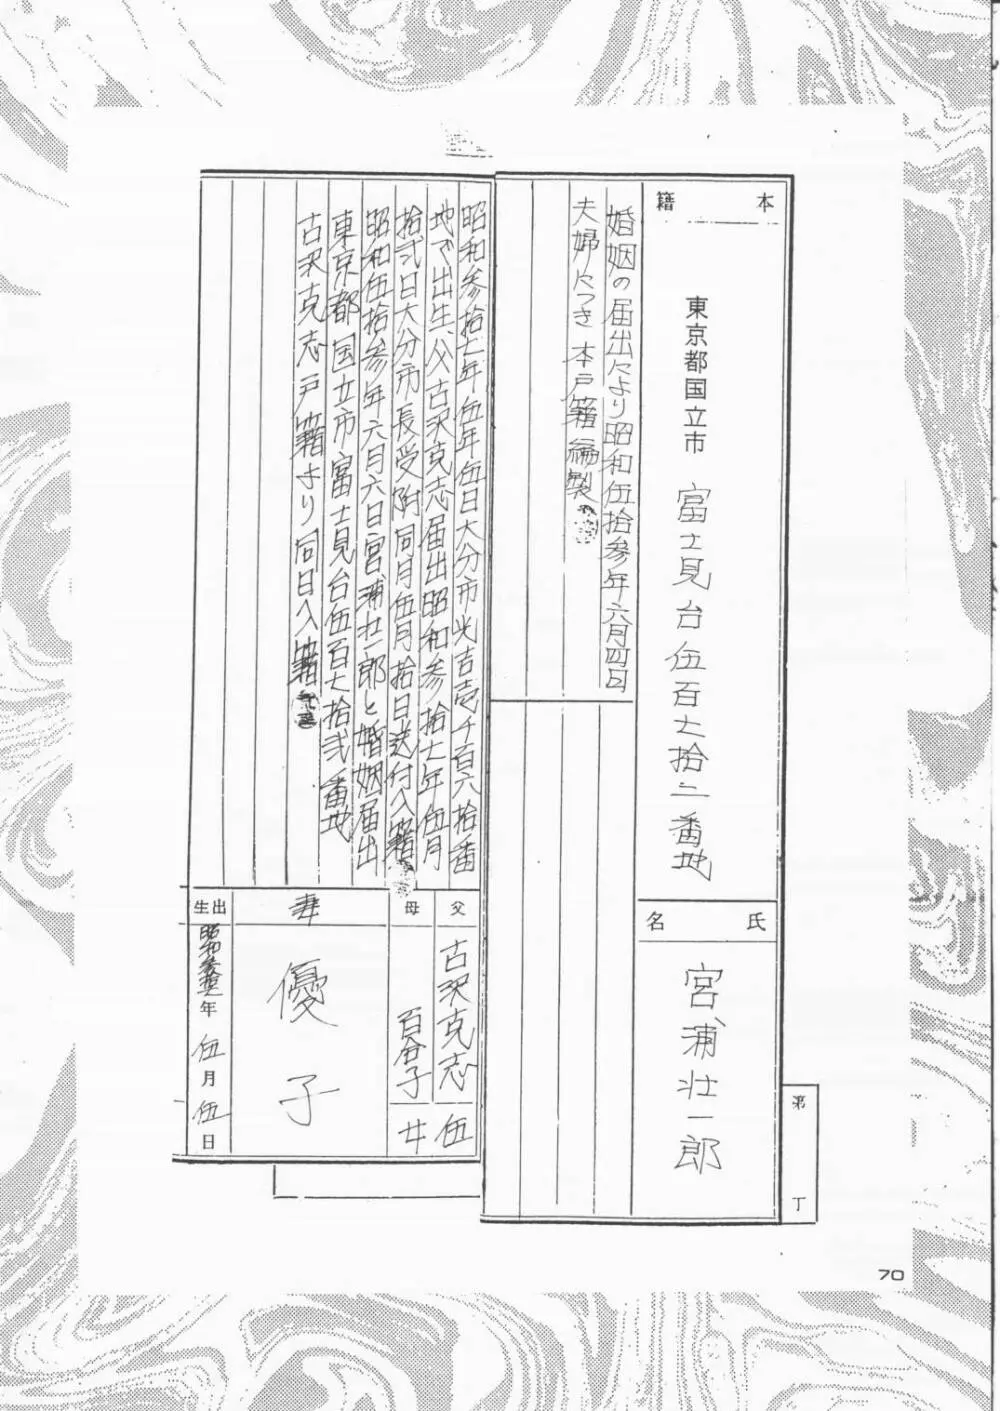 本籍
東京都国立市 富士見台伍百七拾二番地
婚姻の届出により昭和伍拾参年六月四日
夫婦につき本戸籍編製
氏名
宮浦壮一郎
第 丁
昭和参拾七年伍年伍日大分市光吉壱千百六拾番
地で出生、父古沢克志届出昭和参拾七年伍月
拾弐日大分市長受附同月伍月拾日送付入籍
昭和伍拾参年六月六日宮浦壮一郎と婚姻届出
東京都国立市富士見台伍百七拾弐番地
古沢克志戸籍より同日入籍
父 古沢克志 伍
母 百合子 女
妻
優子
出生 昭和参拾七年伍月伍日
70